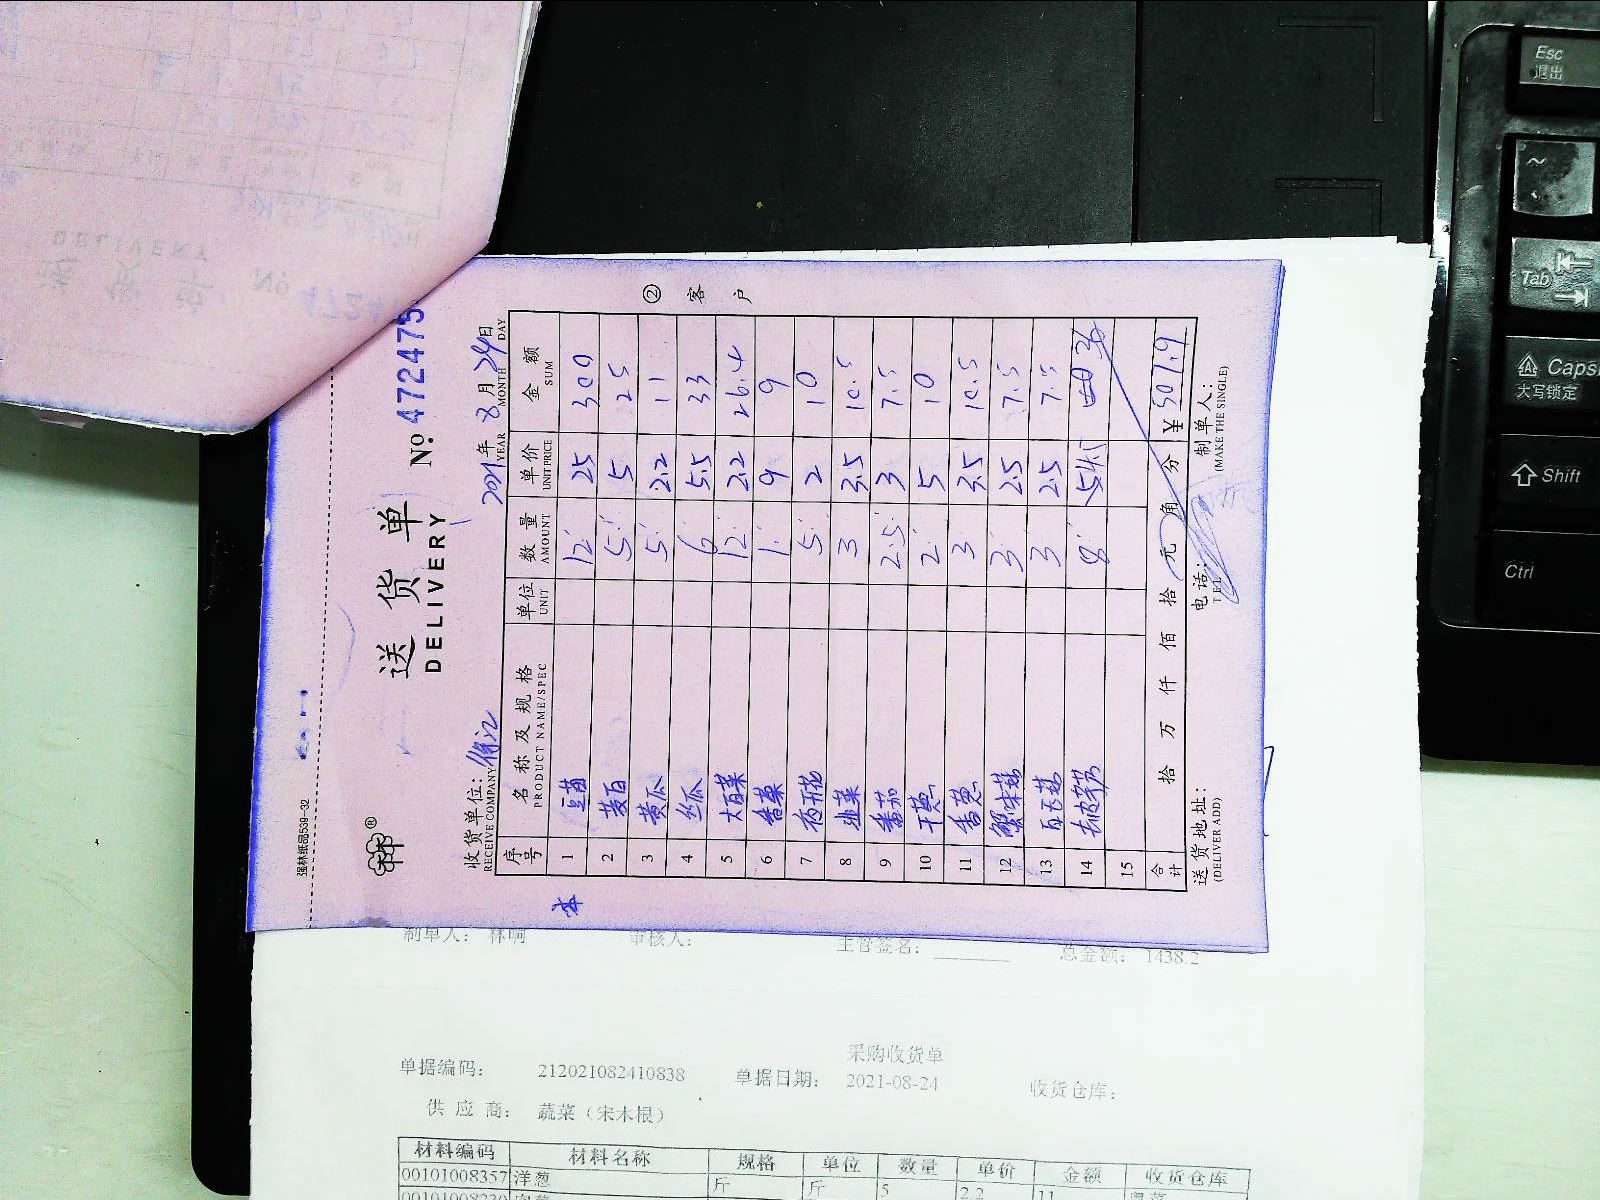 强林纸品539-32
送货单
DELIVERY
No. 472475
收货单位:
RECEIVE COMPANY
2021年 8月 24日
YEAR MONTH DAY
序号 名称及规格 单位 数量 单价 金额
PRODUCT NAME/SPEC UNIT AMOUNT UNIT PRICE SUM
1 豆苗 12 25 300
2 茭白 5 5 25
3 黄瓜 5 2.2 11
4 丝瓜 6 5.5 33
5 大白菜 12 2.2 26.4
6 香菜 1 9 9
7 5 2 10
8 韭菜 3 3.5 10.5
9 番茄 2.5 3 7.5
10 干葱 2 5 10
11 香葱 3 3.5 10.5
12 蟹味菇 3 2.5 7.5
13 白玉菇 3 2.5 7.5
14 8
15
合计 拾 万 仟 佰 拾 元 角 分 ¥ 501.9
送货地址: 电话: 制单人:
(DELIVER ADD) TEL (MAKE THE SINGLE)
② 客户
制单人: 林响 审核人: 主管签名: 总金额: 1438.2
采购收货单
单据编码: 212021082410838 单据日期: 2021-08-24 收货仓库:
供应商: 蔬菜（宋木根）
材料编码 材料名称 规格 单位 数量 单价 金额 收货仓库
00101008357 洋葱 斤 斤 5 2.2 11
Esc
退出
~
Tab
Caps
大写锁定
Shift
Ctrl